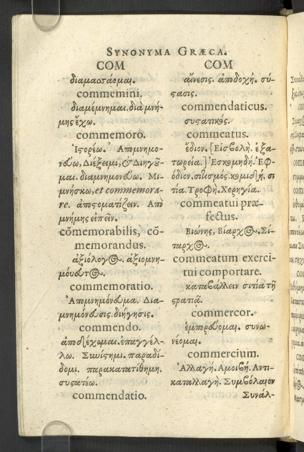 SYNONYMA GRÆCA.
COM
διαμαστάομαι.
commemini.
διαμέμνημαι. διὰ μνή-
μης ἔχω.
commemoro.
Ἱστορέω. Ἀπομνημο-
νεύω, Διέξειμι, Διηγοῦ-
μαι. διαμνημονεύω. Μι-
μνήσκω, et commemora-
re. ἀποστοματίζειν. Ἀπὸ
μνήμης εἰπεῖν.
cōmemorabilis, cō-
memorandus.
ἀξιόλογος. ἀξιομνη-
μόνευτος.
commemoratio.
Ἀπομνημόνευμα. Δια-
μνημόνευσις. διήγησις.
commendo.
ἀποδέχομαι. ἐπαγγέλ-
λω. Συνίστημι. παραδί-
δομι. παρακατατίθημι.
συστατιῶ.
commendatio.
COM
αἴνεσις. ἀποδοχή. σύ-
στασις.
commendaticus.
συστατικός.
commeatus.
ἐφόδιον. σιτισμός. κομιδή, σι
τία. Τροφή. Χορηγία.
commeatui præ-
fectus.
commeatum exerci-
tui comportare.
καταβάλλειν σιτία τῇ
στρατιᾷ.
commercor.
ἐμπορεύομαι. συνω-
νέομαι.
commercium.
Ἀλλαγή. Ἀμοιβή. Ἀντι-
καταλλαγή. Συμβόλαιον
Συνάλ-